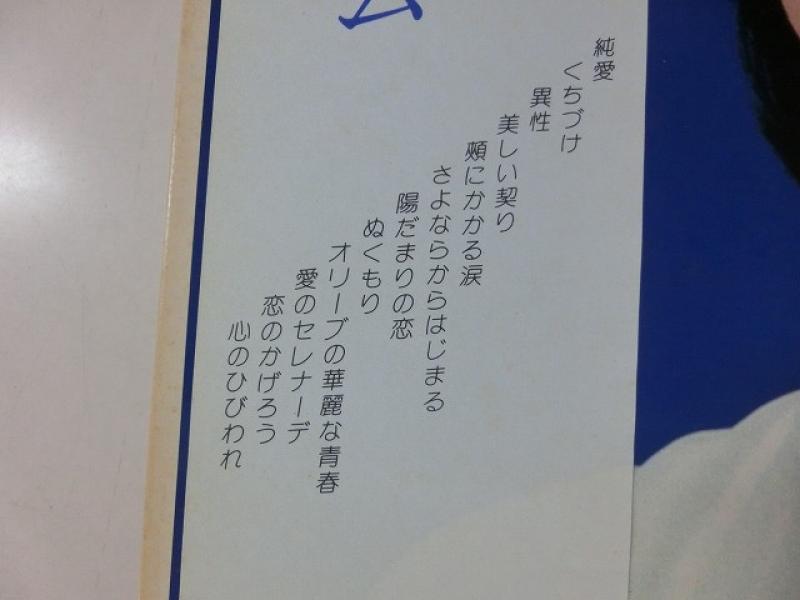 ム
純愛
くちづけ
異性
美しい契り
頰にかかる涙
さよならからはじまる
陽だまりの恋
ぬくもり
オリーブの華麗な青春
愛のセレナーデ
恋のかげろう
心のひびわれ